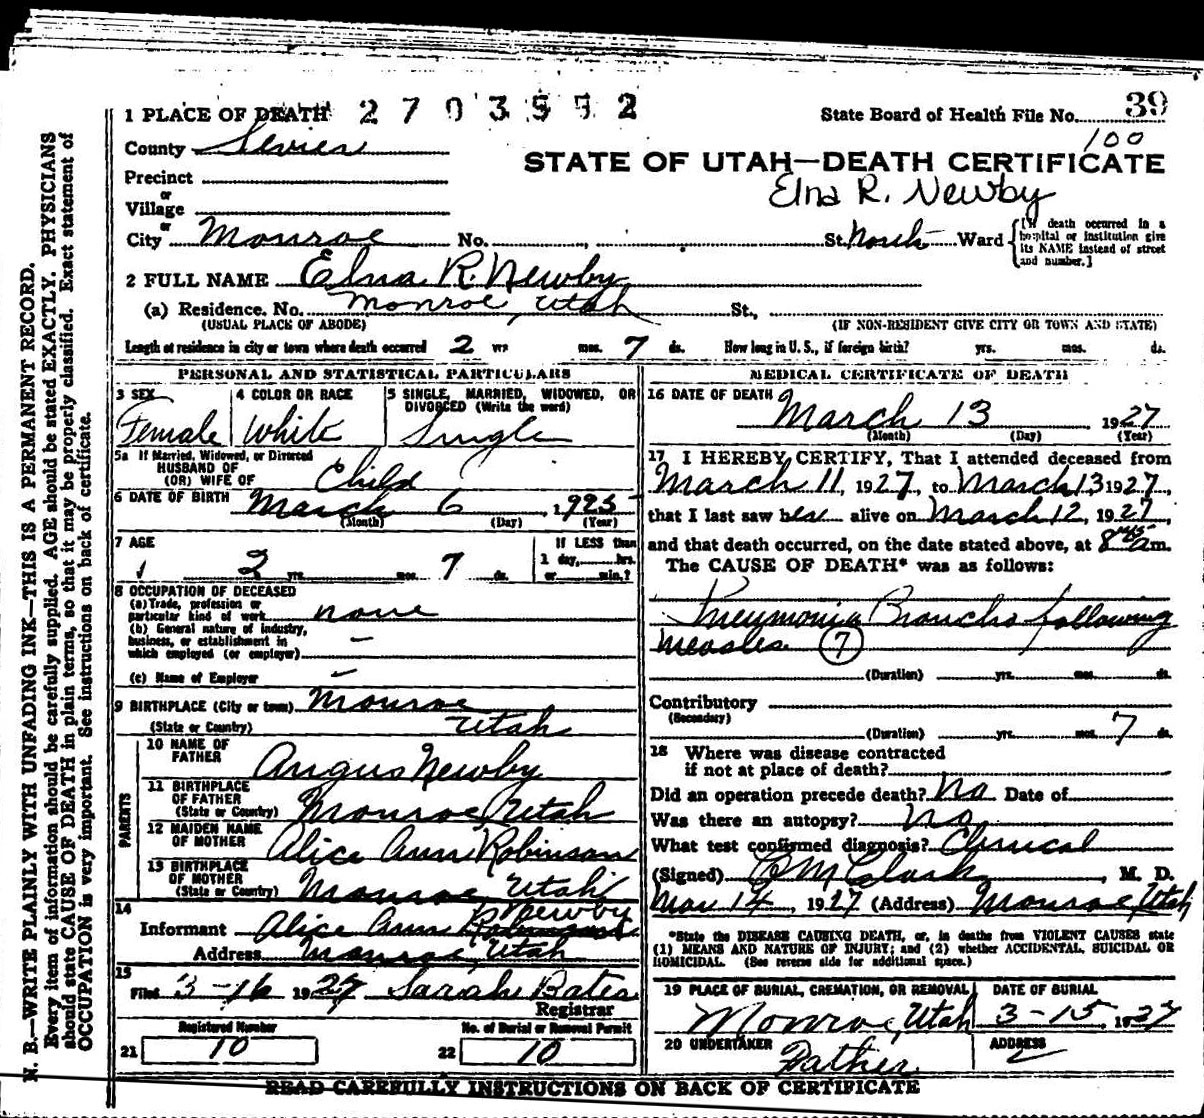 1 PLACE OF DEATH 2703552
State Board of Health File No. 39
100
County Sevier
STATE OF UTAH—DEATH CERTIFICATE
Precinct
or
Elna R. Newby
Village
or
City Monroe No. St. North Ward
[If death occurred in a hospital or institution give its NAME instead of street and number.]
2 FULL NAME Elna R. Newby
(a) Residence. No. Monroe, Utah St.,
(USUAL PLACE OF ABODE) (IF NON-RESIDENT GIVE CITY OR TOWN AND STATE)
Length of residence in city or town where death occurred 2 yrs mos. 7 ds. How long in U. S., if foreign birth? yrs. mos. ds.
PERSONAL AND STATISTICAL PARTICULARS
3 SEX 4 COLOR OR RACE 5 SINGLE, MARRIED, WIDOWED, OR DIVORCED (Write the word)
Female White Single
5a If Married, Widowed, or Divorced
HUSBAND OF
(OR) WIFE OF Child
6 DATE OF BIRTH March 6 1925
(Month) (Day) (Year)
7 AGE If LESS than
1 day, hrs.
2 yrs. mos. 7 ds. or min.?
8 OCCUPATION OF DECEASED
(a) Trade, profession or
particular kind of work none
(b) General nature of industry,
business, or establishment in
which employed (or employer) –
(c) Name of Employer –
9 BIRTHPLACE (City or town) Monroe
(State or Country) Utah
PARENTS
10 NAME OF
FATHER Angus Newby
11 BIRTHPLACE
OF FATHER
(State or Country) Monroe Utah
12 MAIDEN NAME
OF MOTHER Alice Ann Robinson
13 BIRTHPLACE
OF MOTHER
(State or Country) Monroe, Utah
14 Newby
Informant Alice Ann Robinson
Address Monroe, Utah
15
Filed 3-16 1927 Sarah Bates
Registrar
Registered Number No. of Burial or Removal Permit
21 10 22 10
MEDICAL CERTIFICATE OF DEATH
16 DATE OF DEATH
March 13 1927
(Month) (Day) (Year)
17 I HEREBY CERTIFY, That I attended deceased from
March 11, 1927, to March 13 1927,
that I last saw her alive on March 12, 1927,
and that death occurred, on the date stated above, at 8 45 am.
The CAUSE OF DEATH* was as follows:
Pneumonia Broncho following
measles 7
(Duration) yrs. mos. ds.
Contributory
(Secondary)
(Duration) yrs. mos. 7 ds.
18 Where was disease contracted
if not at place of death?
Did an operation precede death? No Date of
Was there an autopsy? No
What test confirmed diagnosis? Clinical
(Signed) C M Clark, M. D.
Mar 14, 1927 (Address) Monroe Utah
*State the DISEASE CAUSING DEATH, or, in deaths from VIOLENT CAUSES state
(1) MEANS AND NATURE OF INJURY; and (2) whether ACCIDENTAL, SUICIDAL OR
HOMICIDAL. (See reverse side for additional space.)
19 PLACE OF BURIAL, CREMATION, OR REMOVAL DATE OF BURIAL
Monroe, Utah 3-15, 1927
20 UNDERTAKER ADDRESS
Father
READ CAREFULLY INSTRUCTIONS ON BACK OF CERTIFICATE
N. B.—WRITE PLAINLY WITH UNFADING INK—THIS IS A PERMANENT RECORD.
Every item of information should be carefully supplied. AGE should be stated EXACTLY. PHYSICIANS
should state CAUSE OF DEATH in plain terms, so that it may be properly classified. Exact statement of
OCCUPATION is very important. See instructions on back of certificate.